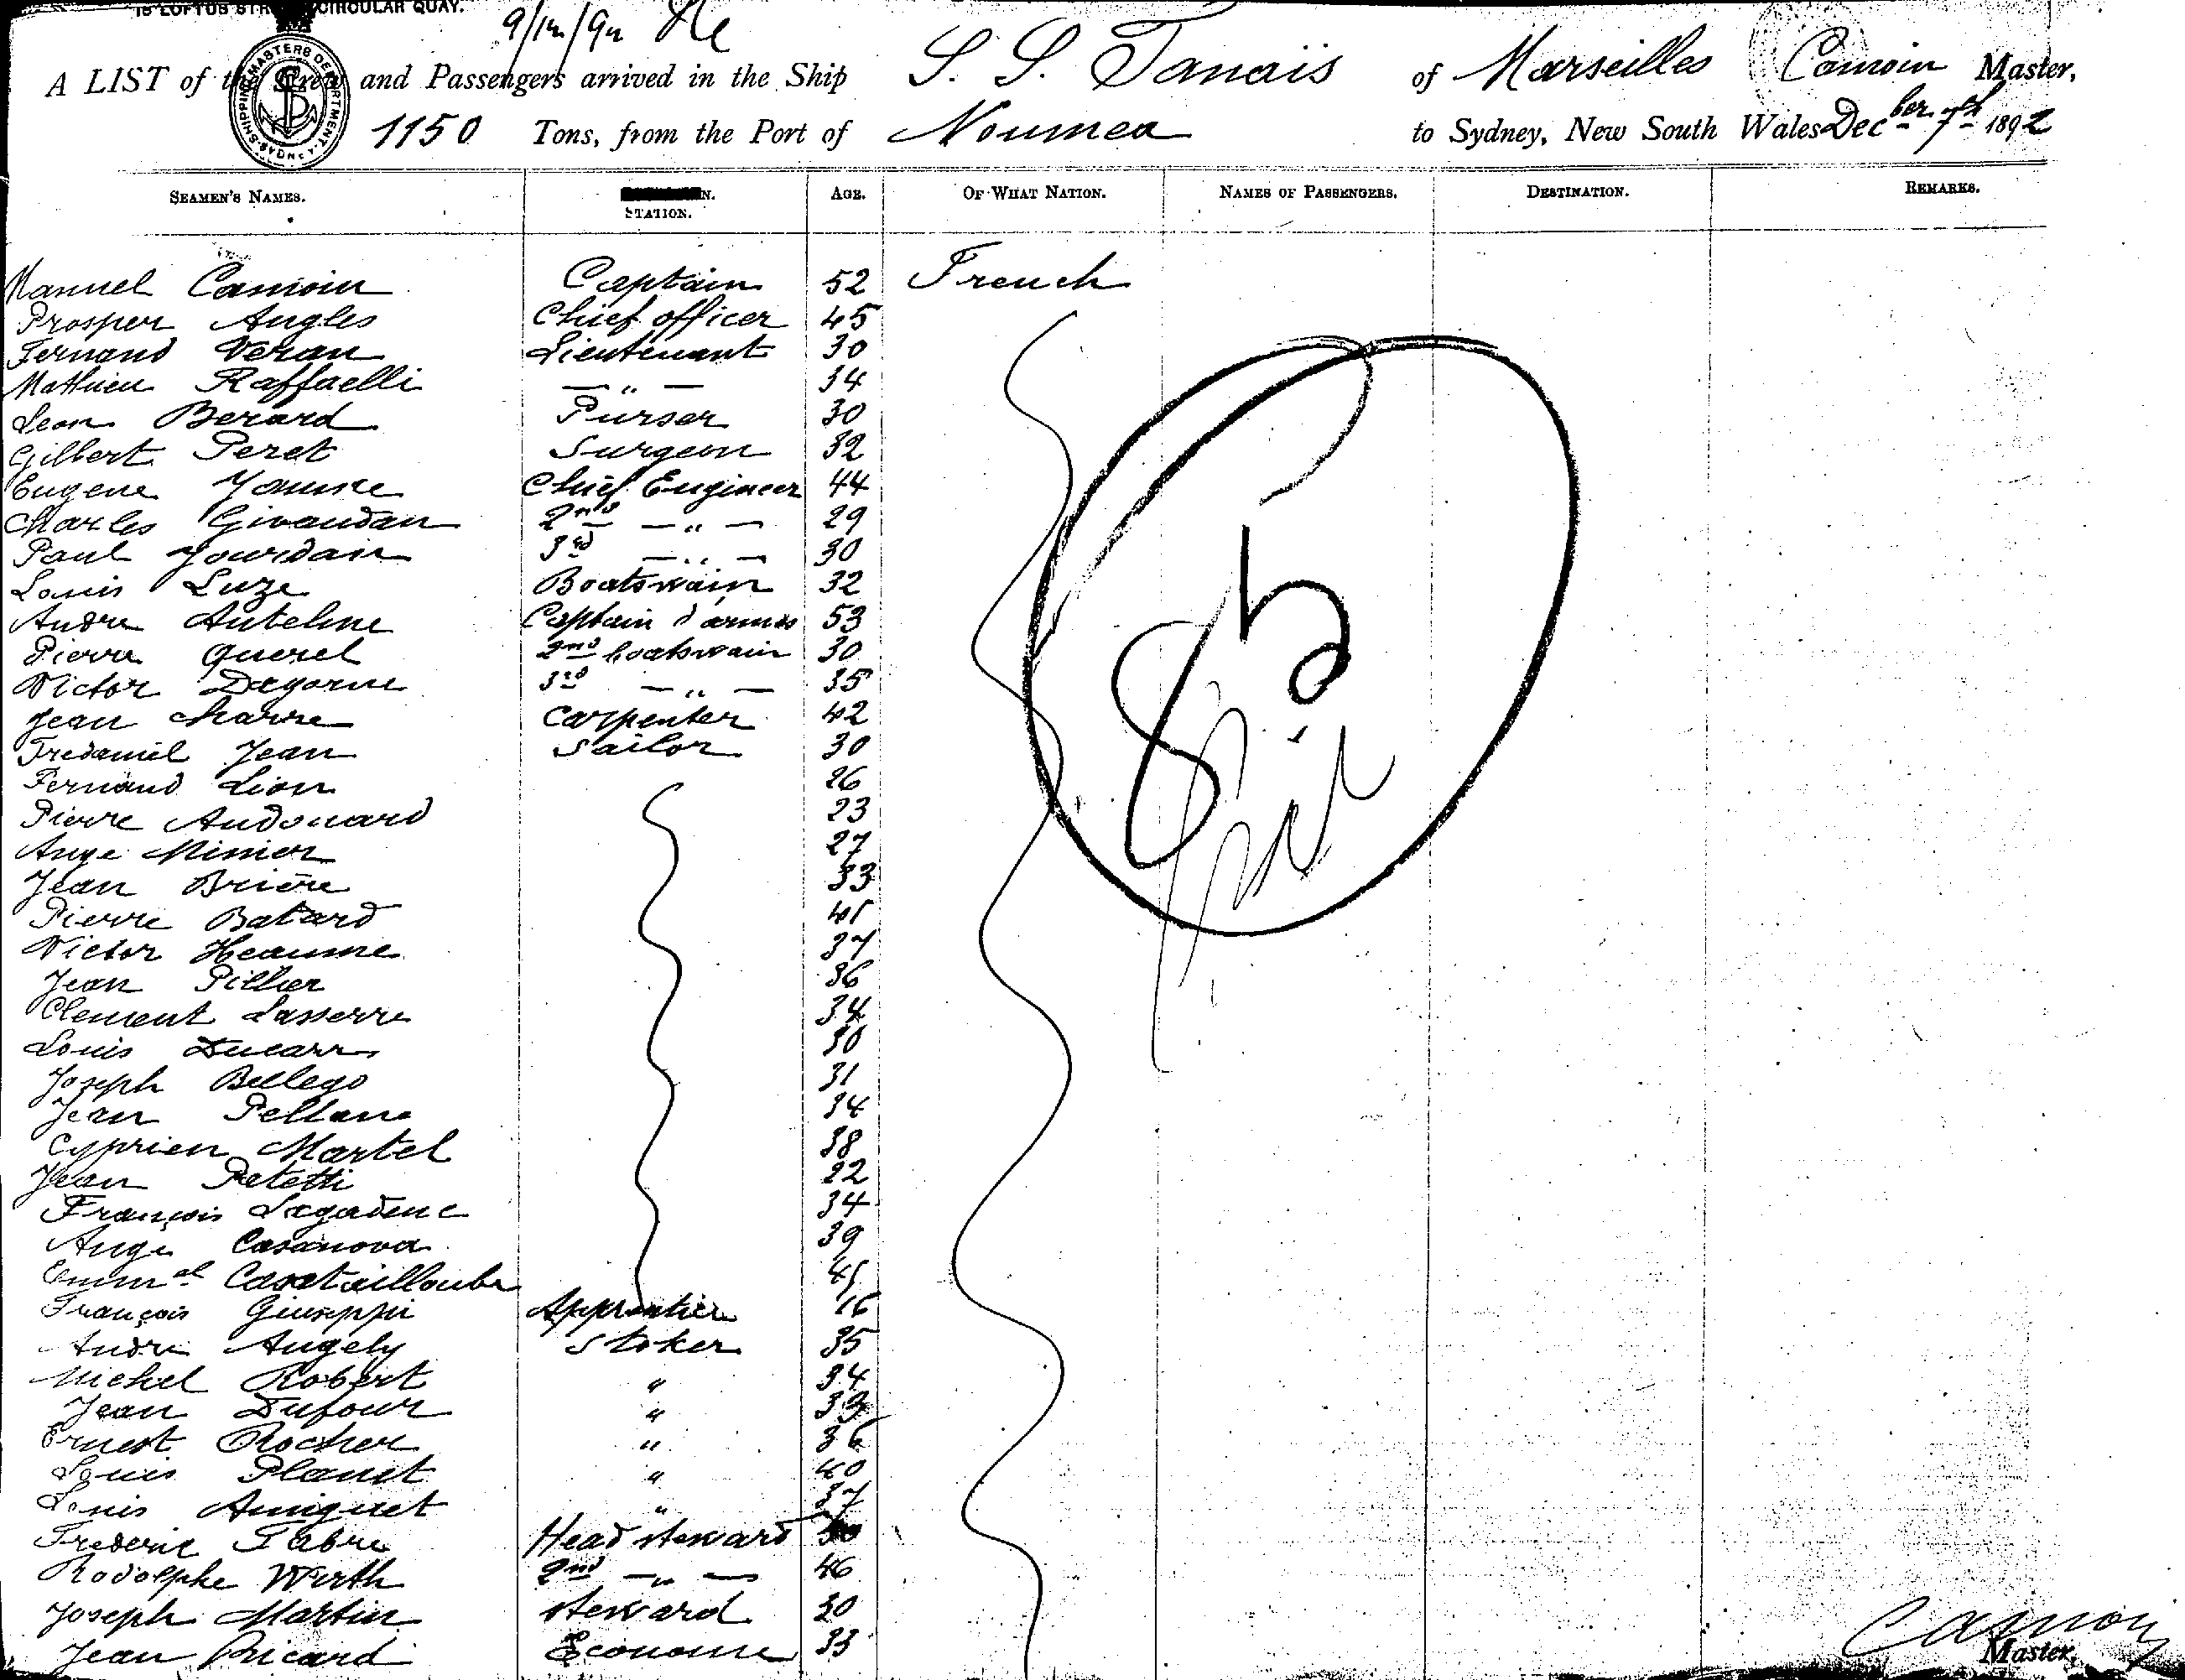 18 LOFTUS STR CIRCULAR QUAY.
9/12/92
A LIST of the Crew and Passengers arrived in the Ship S. S. Tanais of Marseilles Camoin Master,
SHIPPING MASTERS DEPARTMENT
1150 Tons, from the Port of Noumea to Sydney, New South Wales Dec ber 7th 1892
SEAMEN'S NAMES. STATION. AGE. OF WHAT NATION. NAMES OF PASSENGERS. DESTINATION. REMARKS.
Manuel Camoin Captain 52 French
Prosper Angles Chief officer 45
Fernand Veran Lieutenant 30
Mathieu Raffaelli — " — 34
Leon Berard Purser 30
Gilbert Peret Surgeon 32
Eugene Chief Engineer 44
Charles Givaudan 2nd — " — 29
Paul Jourdain 3rd — " — 30
Louis Luze Boatswain 32
Andre Captain d'armes 53
Pierre Querel 2nd boatswain 30
Victor Dagorne 3rd — " — 35
Jean Charre Carpenter 42
Tredaniel Jean Sailor 30
Fernand Lion 26
Pierre Audouard 23
Ange Minier 27
Jean Brière 33
Pierre Batard 41
Victor Heaume 37
Jean Pillier 36
Clement Lasserre 34
Louis 30
Joseph Bellego 31
Jean Pellan 34
Cyprien Martel 38
Jean Petetti 22
François Lagadenc 34
Ange Casanova 39
Emmal
François Giuseppi Apprentice 16
Andre Angely Stoker 35
Michel Robert " 34
Jean Dufour " 33
Ernest Rocher " 36
Louis Planet " 40
Louis Amiguet " 37
Frederic Fabre Head steward
Rodolphe Wirth 2nd — " — 46
Joseph Martin steward 30
Jean Ricard Econome 33
85
Camoin
Master.